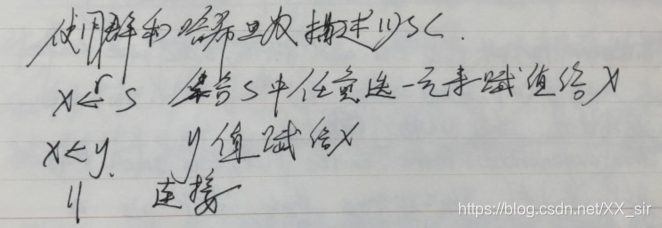 使用群和哈希函数描述IBSC.
x ←r S 集合S中任意选一元素赋值给x
x ← y. y值赋给x
|| 连接
https://blog.csdn.net/XX_sir